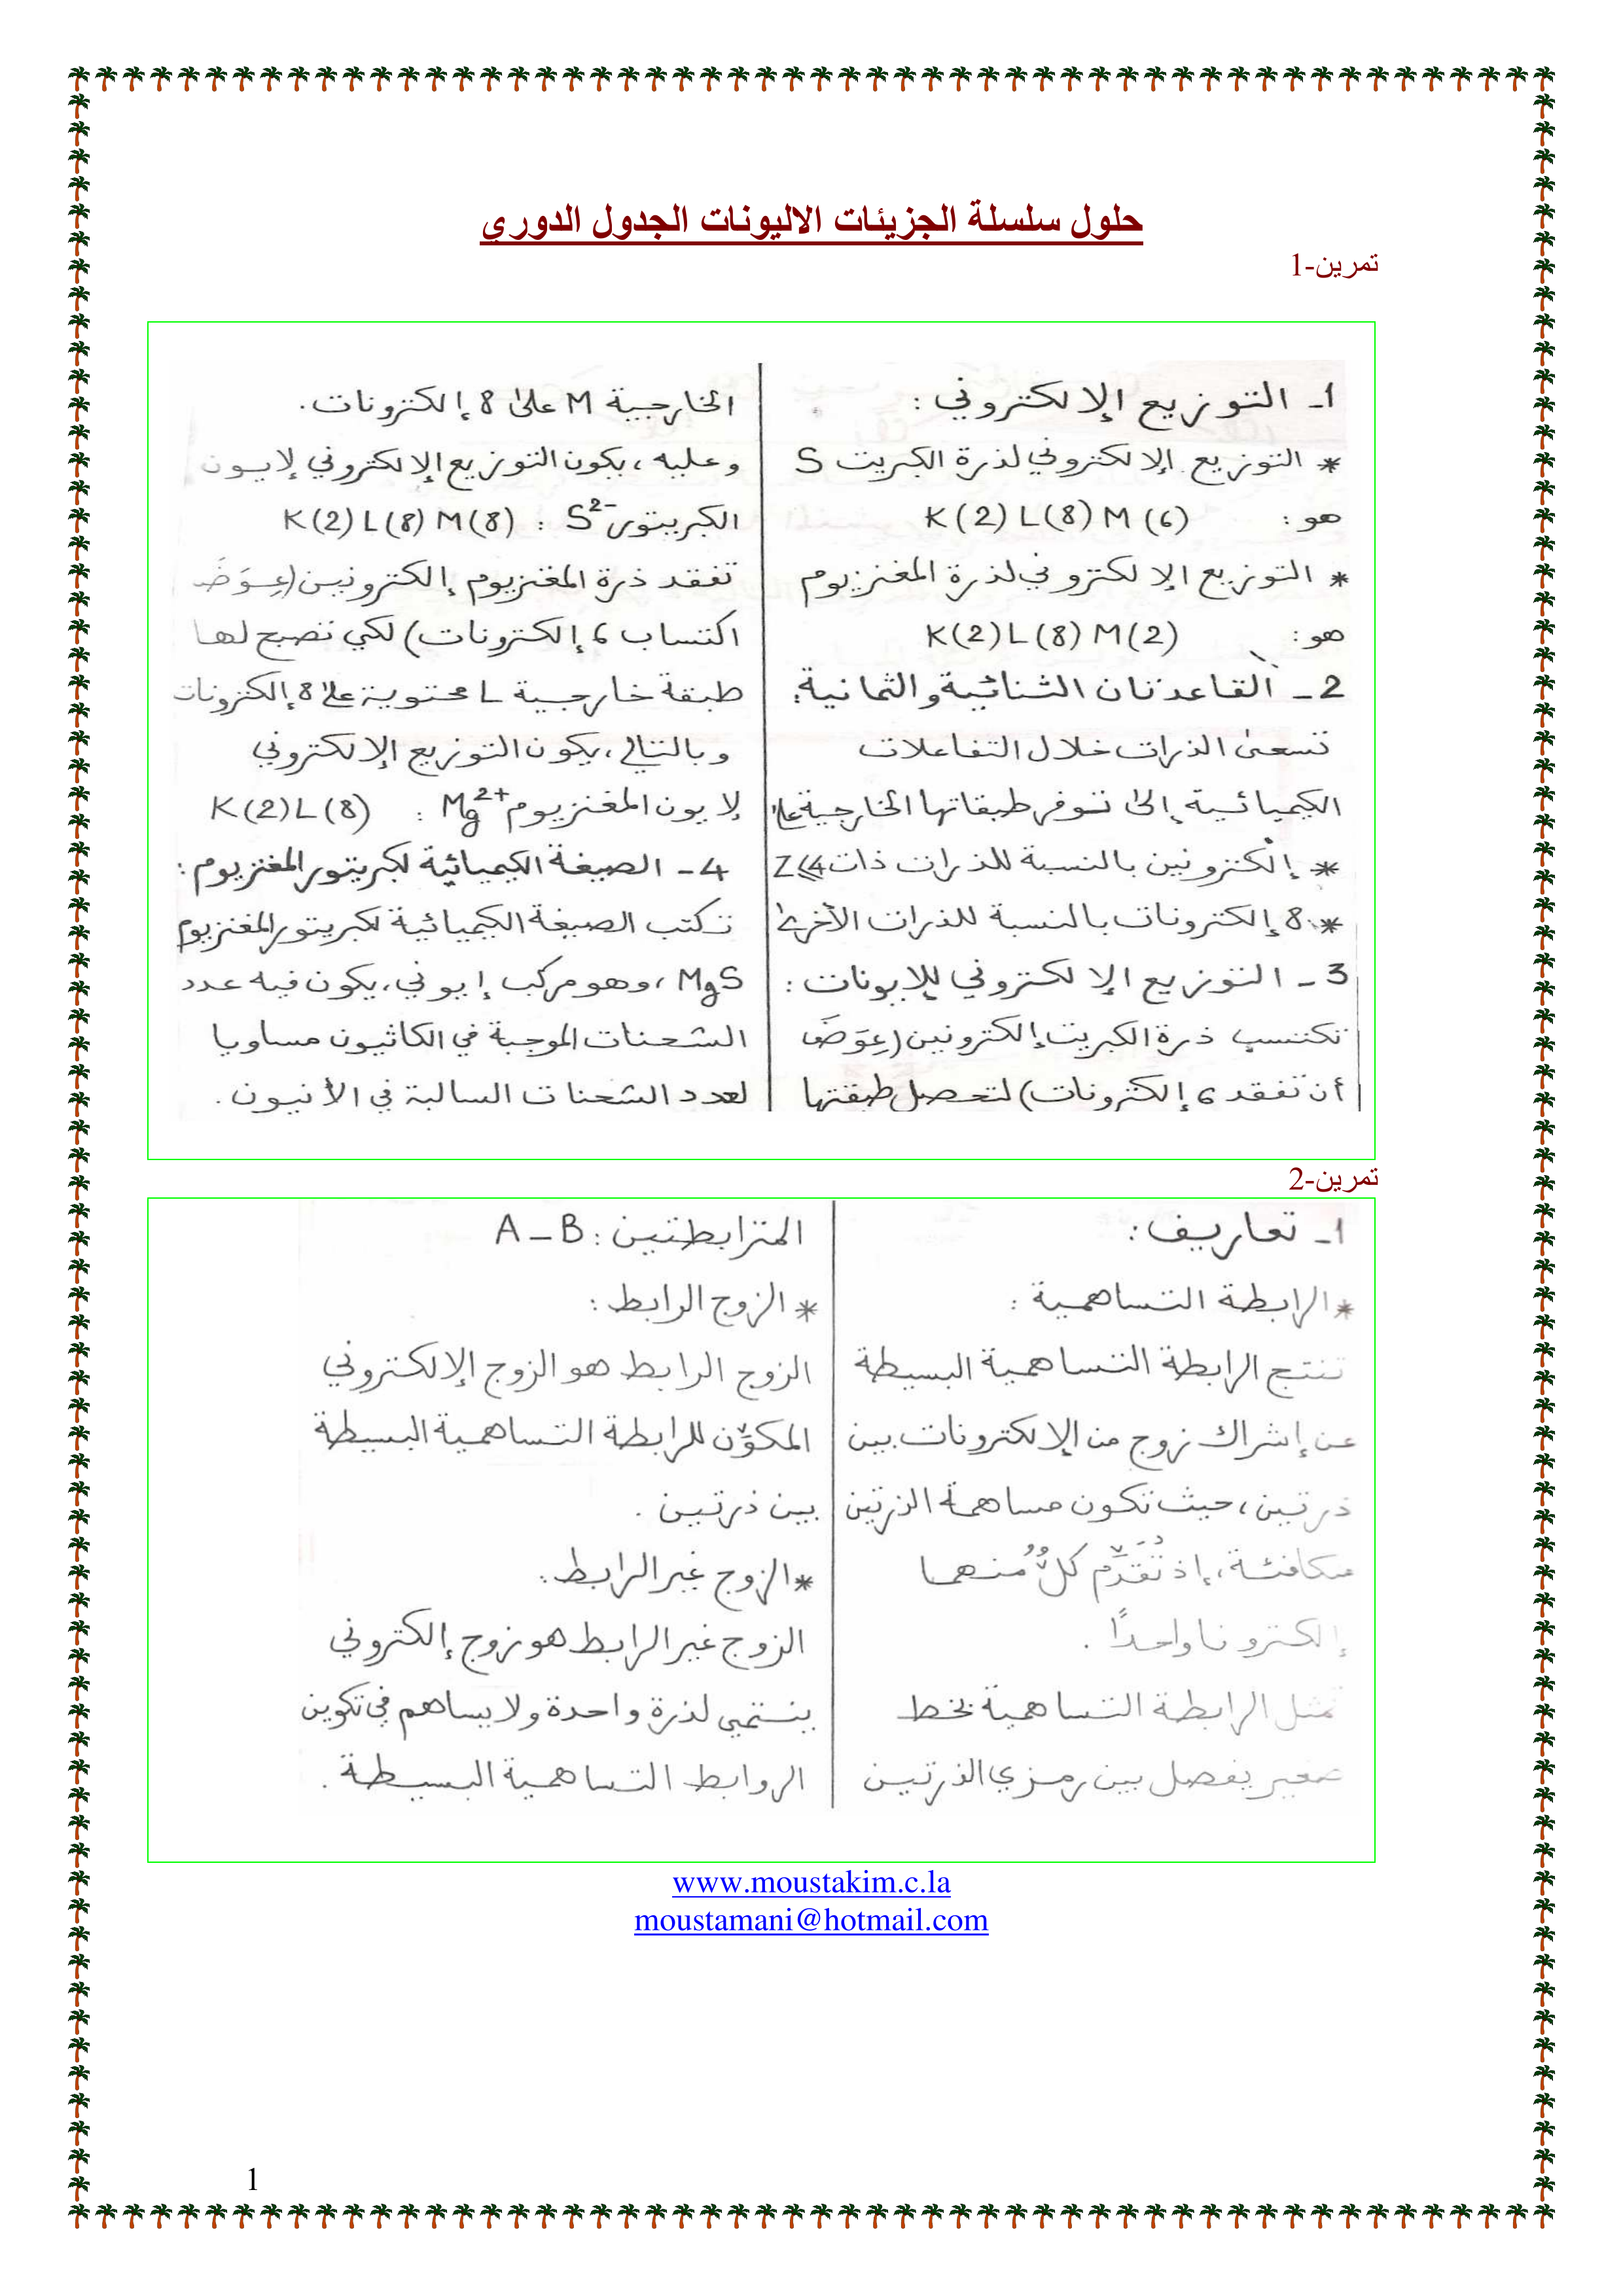 حلول سلسلة الجزيئات الاليونات الجدول الدوري
تمرين-1
1- التوزيع الإلكتروني :
* التوزيع الإلكتروني لذرة الكبريت S
هو : K(2) L(8) M(6)
* التوزيع الإلكتروني لذرة المغنزيوم
هو : K(2) L(8) M(2)
2- القاعدتان الثنائية والثمانية:
تسعى الذرات خلال التفاعلات
الكيميائية إلى توفر طبقاتها الخارجية على
* إلكترونين بالنسبة للذرات ذات Z≤4
* 8 إلكترونات بالنسبة للذرات الأخرى
3- التوزيع الإلكتروني للإيونات :
تكتسب ذرة الكبريت إلكترونين (عِوَضَ
أن تفقد 6 إلكترونات) لتحصل طبقتها
الخارجية M على 8 إلكترونات.
وعليه، يكون التوزيع الإلكتروني لإيون
الكبريتور S²⁻ : K(2) L(8) M(8)
تفقد ذرة المغنزيوم إلكترونين (عِوَضَ
اكتساب 6 إلكترونات) لكي تصبح لها
طبقة خارجية L محتوية على 8 إلكترونات
وبالتالي، يكون التوزيع الإلكتروني
لايون المغنزيوم Mg²⁺ : K(2) L(8)
4- الصيغة الكيميائية لكبريتور المغنزيوم :
تكتب الصيغة الكيميائية لكبريتور المغنزيوم
MgS ، وهو مركب إيوني، يكون فيه عدد
الشحنات الموجبة في الكاثيون مساويا
لعدد الشحنات السالبة في الأنيون .
تمرين-2
1- تعاريف:
* الرابطة التساهمية :
تنتج الرابطة التساهمية البسيطة
عن إشراك زوج من الإلكترونات بين
ذرتين، حيث تكون مساهمة الذرتين
متكافئة، إذ تُقَدِّم كلٌّ منهما
إلكترونا واحدًا .
تمثل الرابطة التساهمية بخط
صغير يفصل بين رمزي الذرتين
المترابطتين : A – B
* الزوج الرابط :
الزوج الرابط هو الزوج الإلكتروني
المكوّن للرابطة التساهمية البسيطة
بين ذرتين .
* الزوج غير الرابط :
الزوج غير الرابط هو زوج إلكتروني
ينتمي لذرة واحدة ولا يساهم في تكوين
الروابط التساهمية البسيطة .
www.moustakim.c.la
moustamani@hotmail.com
1